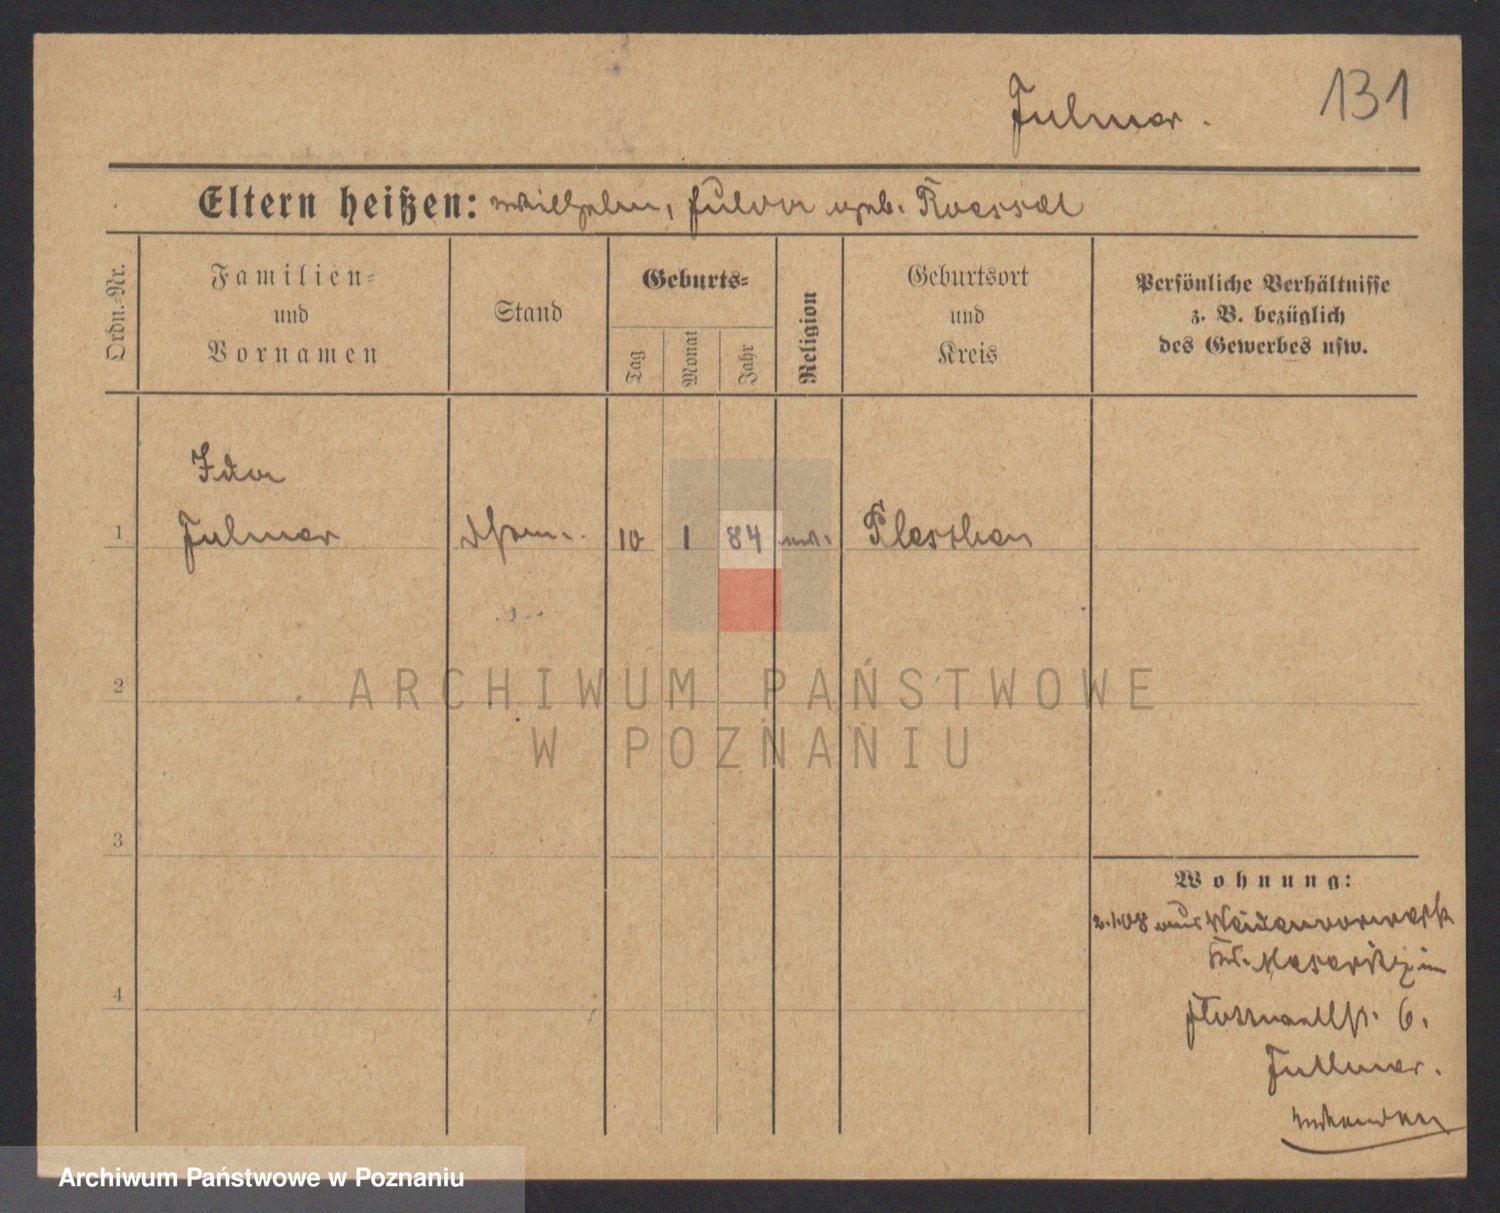 131
Fulmer.
Eltern heißen: Wilhelm, geb.
Ordn.-Nr.
Familien-
und
Vornamen
Stand
Geburts-
Tag
Monat
Jahr
Religion
Geburtsort
und
Kreis
Persönliche Verhältnisse
z. B. bezüglich
des Gewerbes usw.
Ida
1 Fulmer 10 1 84 Pleschen
2
3
4
Wohnung:
2.1.08 aus Weidenvorwerk
Kr. Meseritz in
6.
Archiwum Państwowe
w Poznaniu
Archiwum Państwowe w Poznaniu